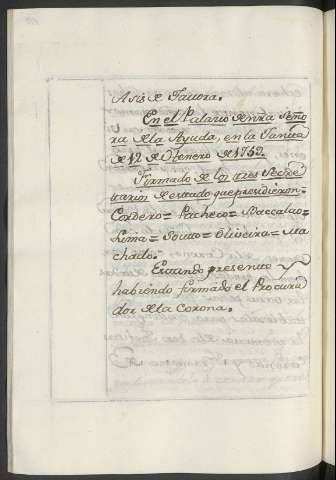 Asis de Tavora.
En el Palacio de nra Seño
ra de la Ayuda, en la Junta
de 12 de Henero de 1759.
Firmado de los tres Secre
tarios de estado que presidieron =
Cordero = Pacheco = Baccalao =
Lima = Souto = Oliveira = Ma
chado.
Estando presente y
habiendo firmado el Procura
dor de la Corona.